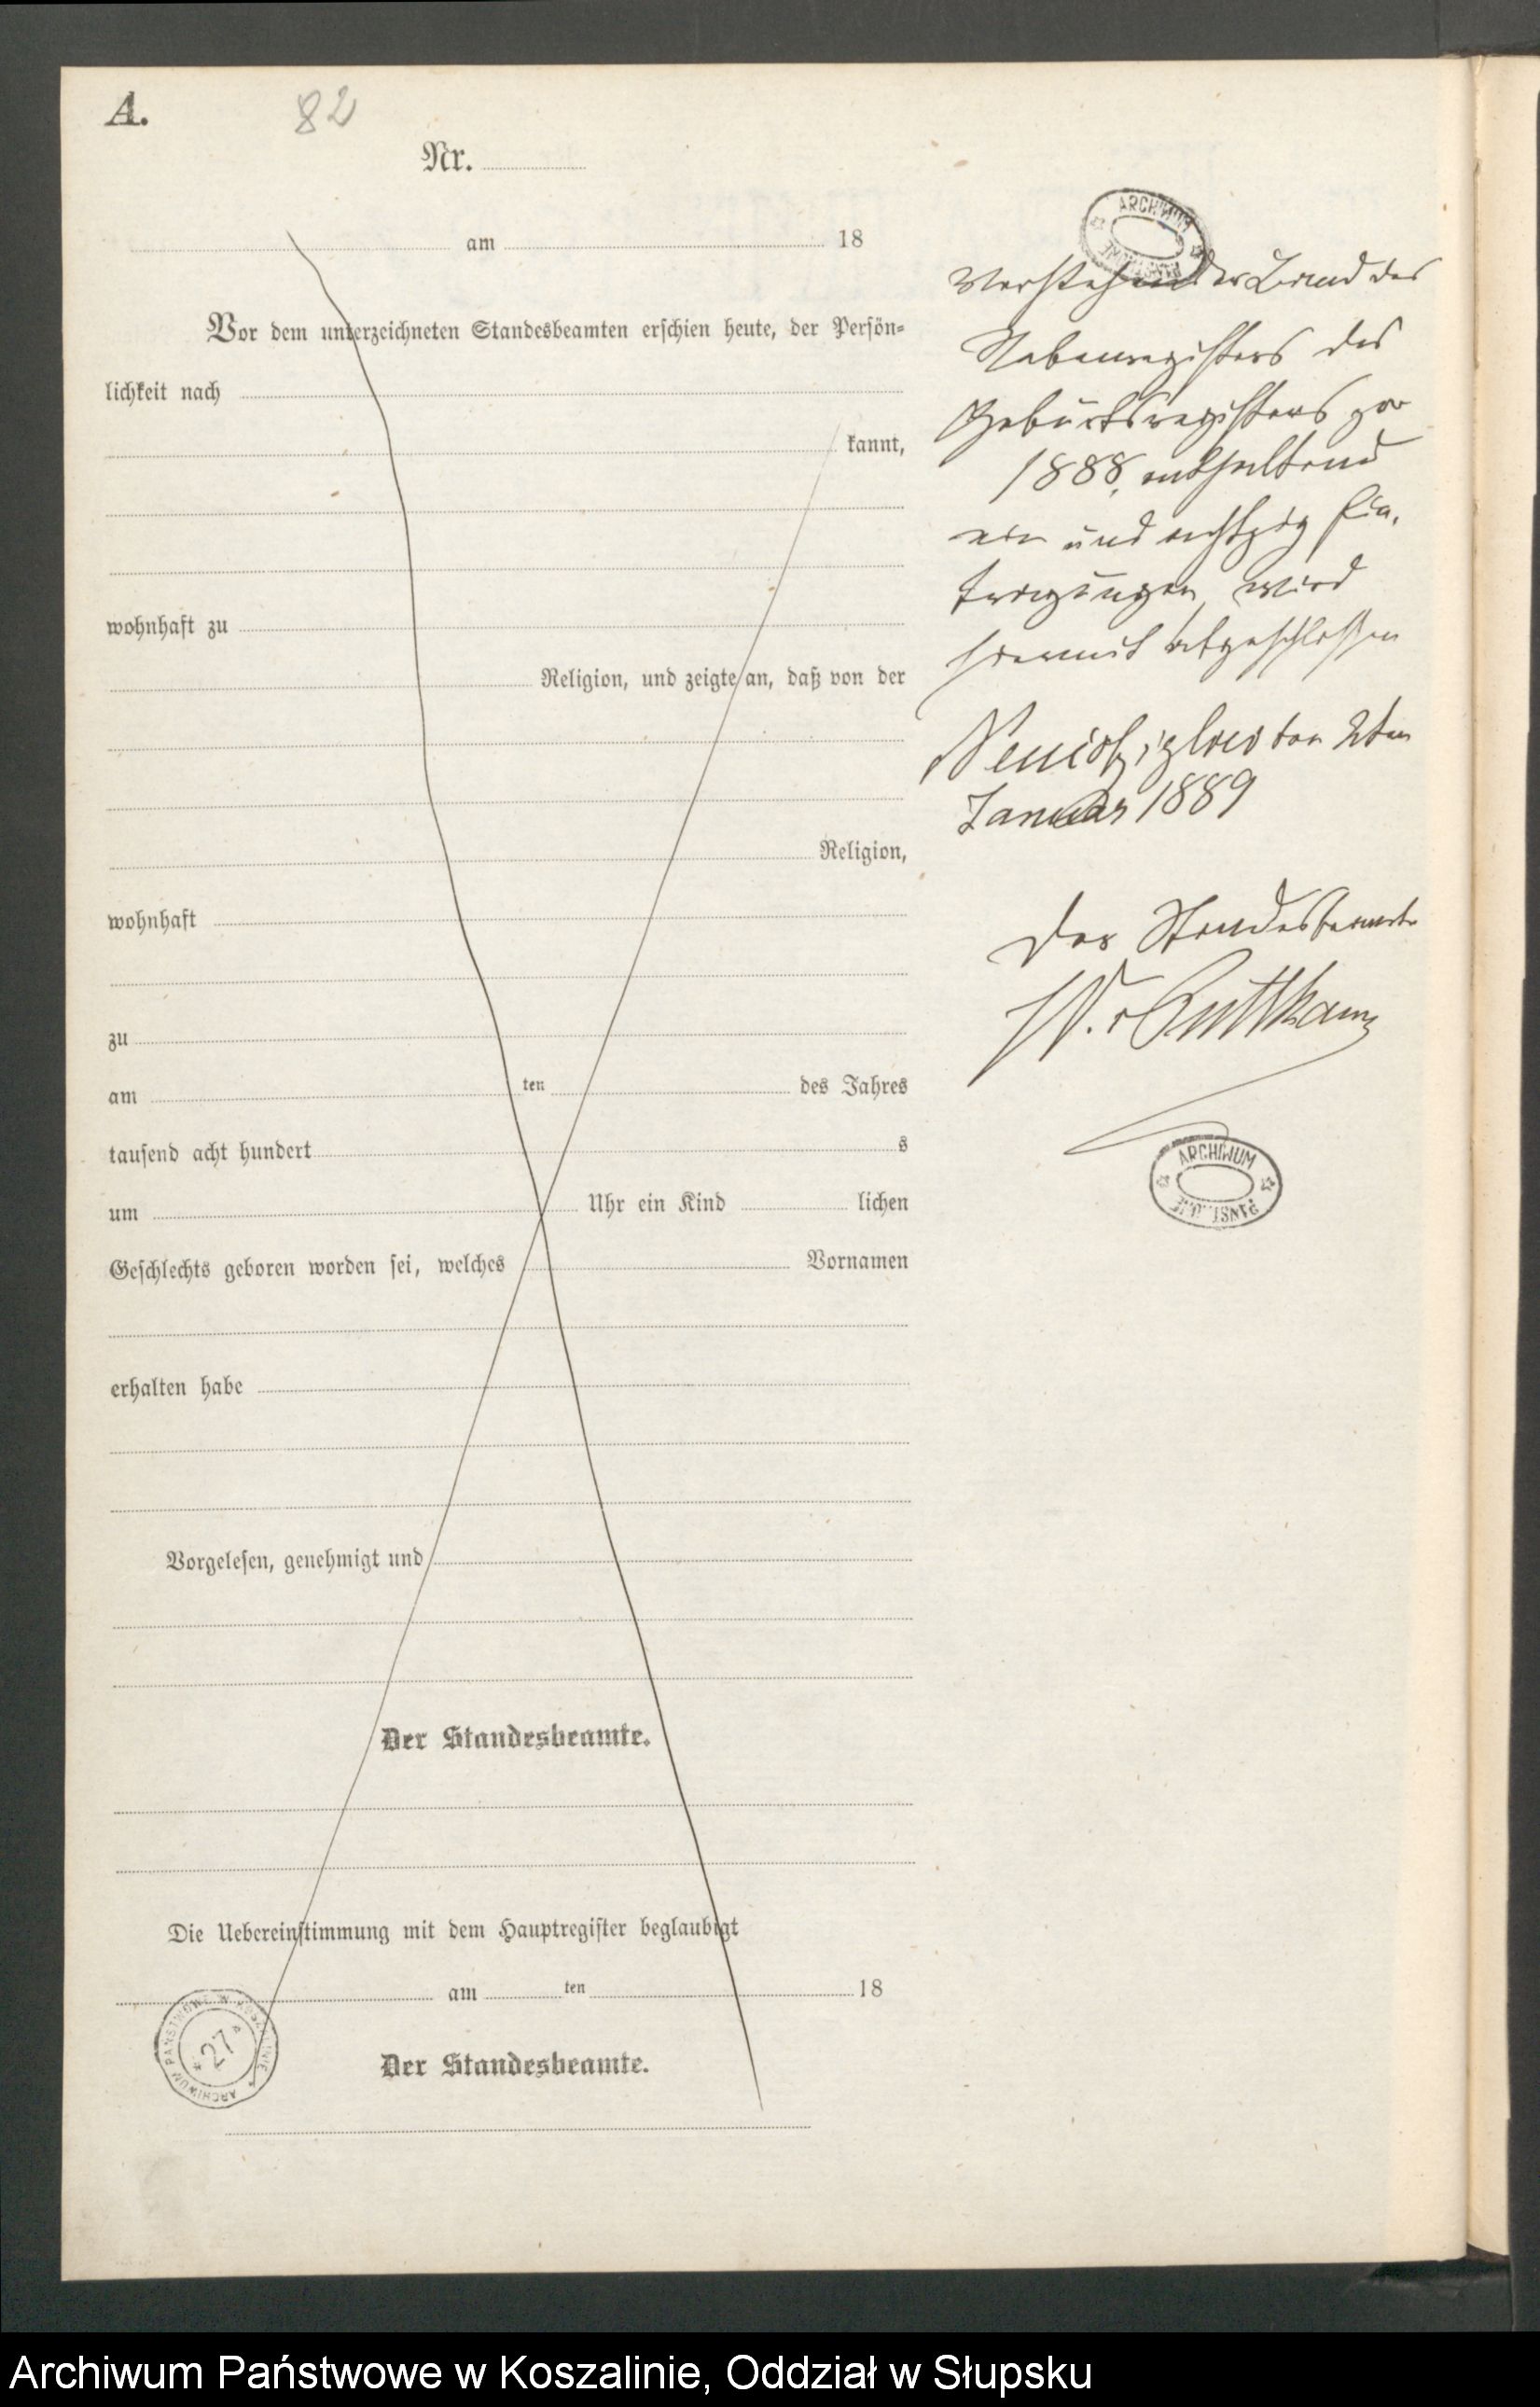 A.
82
Nr.
am 18
Vor dem unterzeichneten Standesbeamten erschien heute, der Persön-
lichkeit nach
kannt,
wohnhaft zu
Religion, und zeigte an, daß von der
Religion,
wohnhaft
zu
am ten des Jahres
tausend acht hundert s
um Uhr ein Kind lichen
Geschlechts geboren worden sei, welches Vornamen
erhalten habe
Vorgelesen, genehmigt und
Der Standesbeamte.
Die Uebereinstimmung mit dem Hauptregister beglaubigt
am ten 18
Der Standesbeamte.
ARCHIWUM PAŃSTWOWE W KOSZALINIE
27
ARCHIWUM PAŃSTWOWE
Vorstehender Band des
Nebenregisters des
Geburtsregisters pro
1888, enthaltend
ein und achtzig Ein,
tragungen wird
hiermit abgeschlossen
den 2ten
Januar 1889
Der Standesbeamte
v Puttkamer
ARCHIWUM PAŃSTWOWE
Archiwum Państwowe w Koszalinie, Oddział w Słupsku